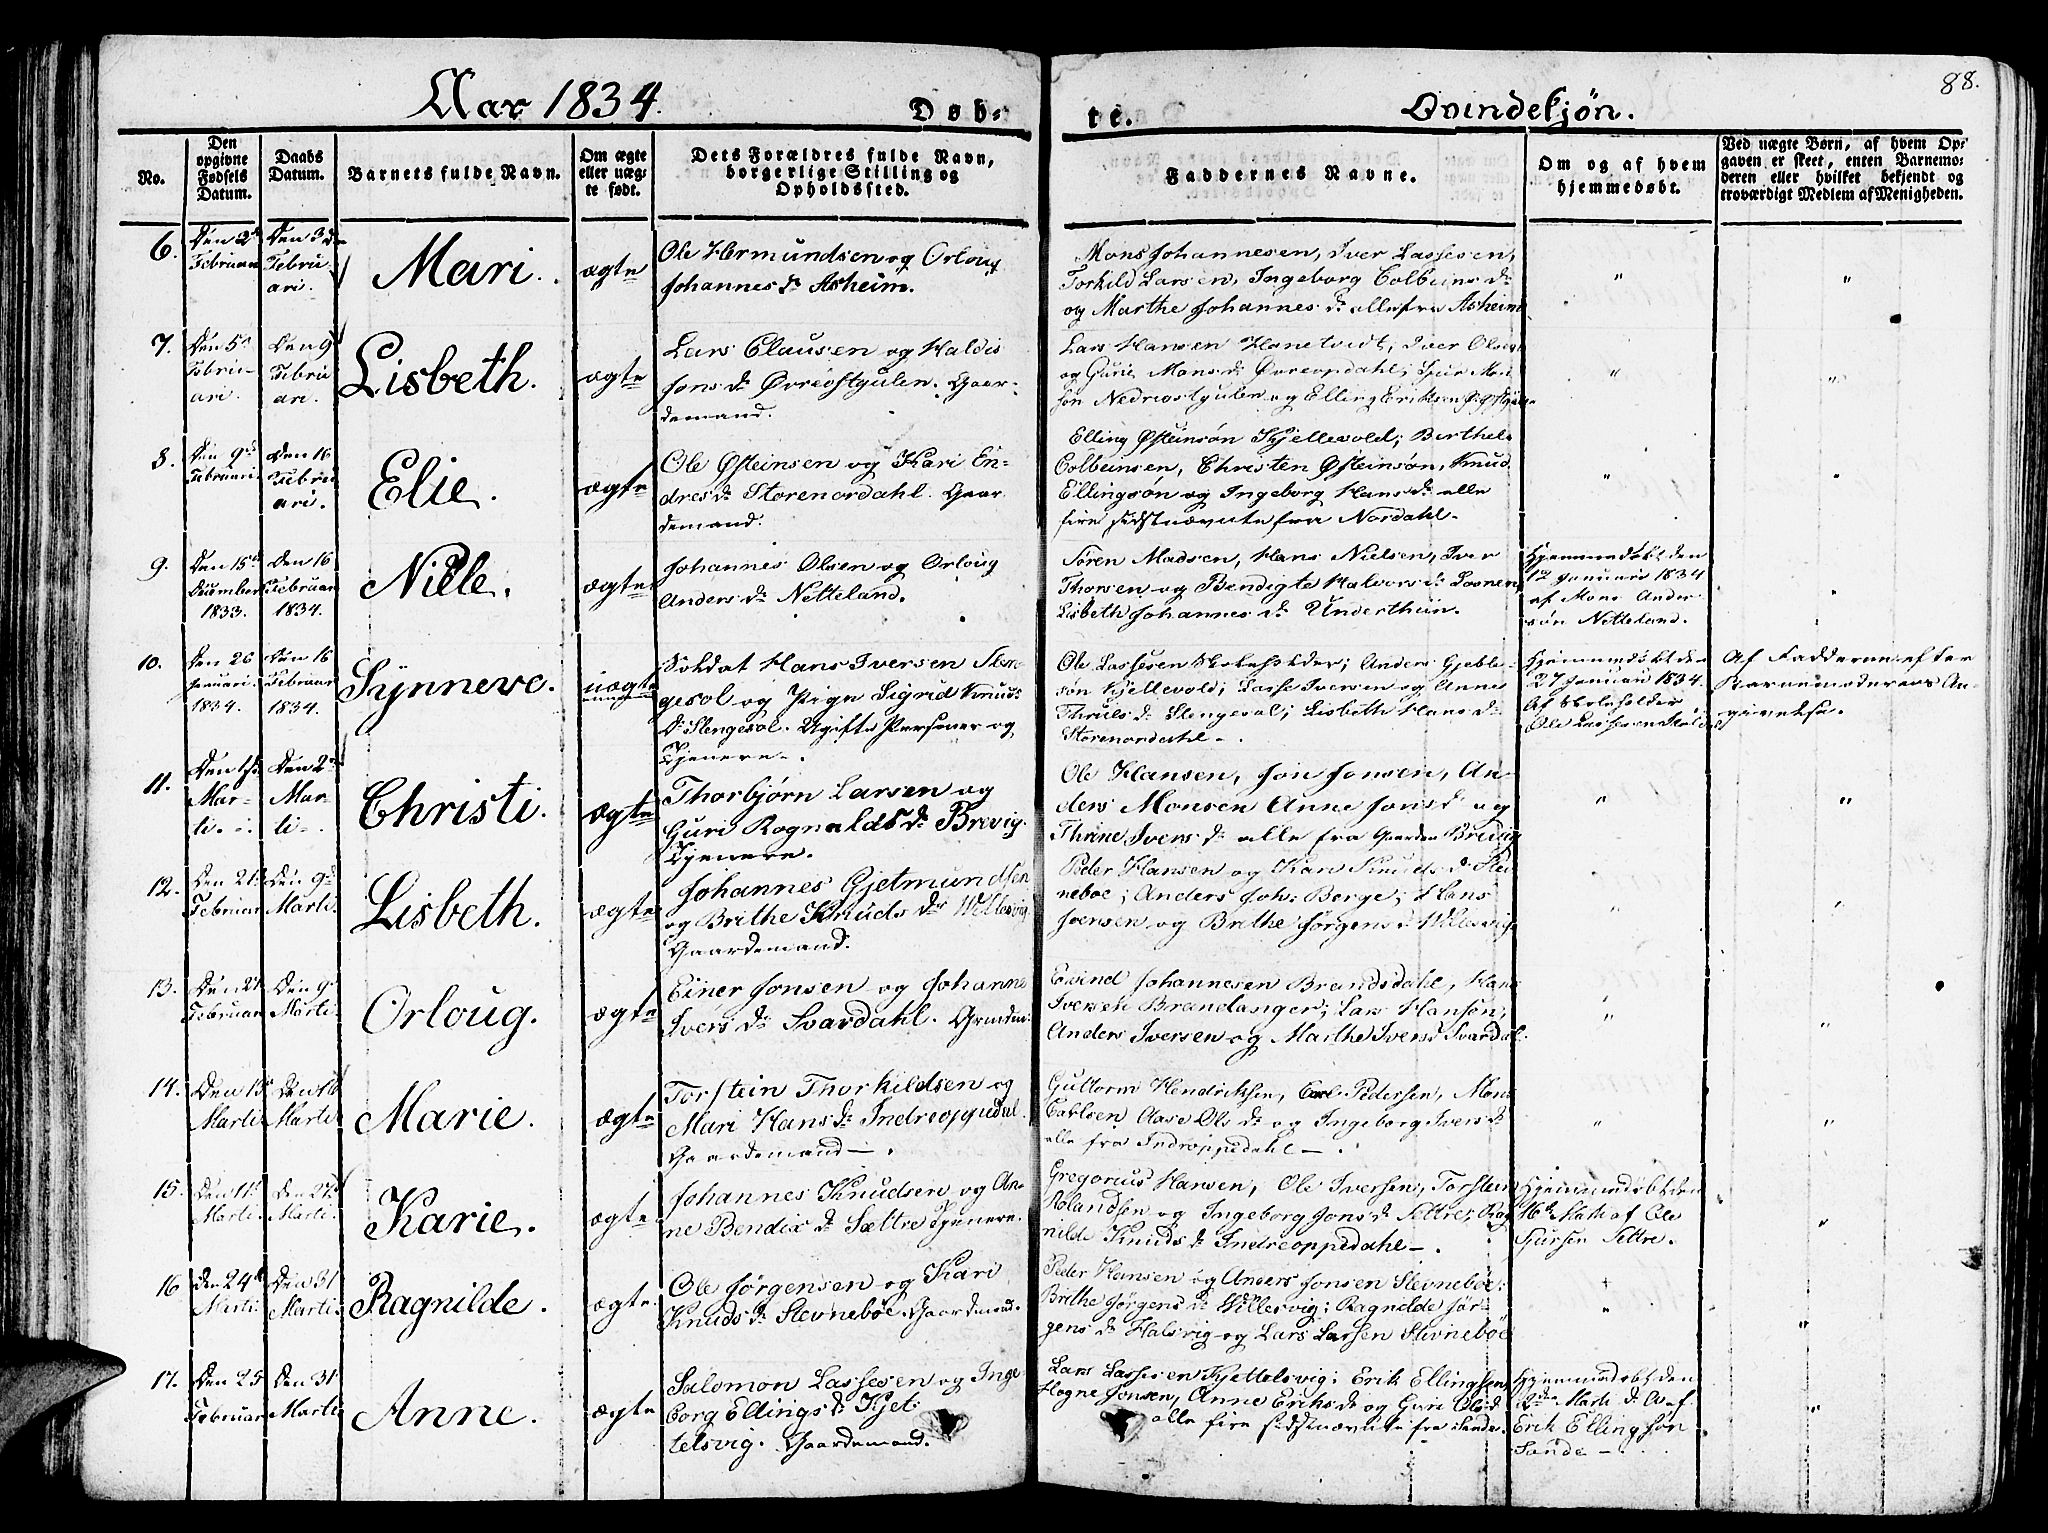 Aar 1834.
Døb-
te.
Qvindekjøn.
88.
No.
Den
opgivne
Fødsels
Datum.
Daabs
Datum.
Barnets fulde Navn.
Om ægte
eller uæg-
te født.
Dets Forældres fulde Navn,
borgerlige Stilling og
Opholdssted.
Faddernes Navne.
Om og af hvem
hjemmedøbt.
Ved uægte Børn, af hvem Op-
gaven er skeet, enten Barnemo-
deren eller hvilket bekjendt og
troværdigt Medlem af Menigheden.
6.
Den 2d
Februari
Den 3d
Febru
ari.
Mari.
ægte
Ole Hermundsen og Orloug
Johannes Dr Asheim.
Mons Johannesen, Iver Lassesen,
Torkild Larsen, Ingeborg Colbeins Dr
og Marthe Johannes Dr alle fra Asheim
"
"
7.
Den 5d
Febru-
ari.
Den 9d
Febru
ari.
Lisbeth.
ægte
Lars Clausen og Haldis
Jons Dr Øvreøstgulen. Gaar-
demand.
Lars Hansen Hanetvedt, Iver Olsen
og Guri Mons Dr Øvreopdahl; Sjur Mon
søn Nedreøstgulen og Elling Eriksen
"
"
8.
Den 9d
Februari
Den 16
Febru
ari.
Elie.
ægte
Ole Østeinsen og Kari En-
dres Dr Storenordahl. Gaar
demand.
Elling Østeinsøn Kjellevold; Berthel
Colbeinsen, Christen Østeinsøn, Knud
Ellingsøn og Ingeborg Hans Dr alle
fire sidstnævnte fra Nordahl.
"
"
9.
Den 15d
December
1833.
Den 16
Februar
1834.
Nille.
ægte
Johannes Olsen og Orloug
Anders Dr Netteland.
Sören Madsen, Hans Nielsen, Iver
Thorsen og Bendigte Halvors Dr Losnen,
Lisbeth Johannes Dr Underthun.
Hjemmedøbt den
12 Januari 1834
af Mons Ander
søn Netteland.
10.
Den 26
Januari.
1834.
Den 16
Februar
1834.
Synneve.
uægte
Soldat Hans Iversen Slen
gesol og Pige Sigrid Knuds
Dr Slengesol. Ugifte Personer og
Tjenere.
Ole Lassesen Skoleholder; Anders Gjeble-
søn Kjellevold; Lasse Iversen og Annes
Thruls Dr Slengesol; Lisbeth Hans Dr
Storenordahl.
Hjemmedøbt den
27 Januari 1834.
Af Skoleholder
Ole Lassesen
Af Fadderne efter
Barnemoderens An-
givelse.
11.
Den 1ste
Mar-
ti.
Den 2d
Mar-
ti.
Christi.
ægte
Thorbjørn Larsen og
Guri Rognalds Dr Brevig.
Tjenere.
Ole Hansen, Jon Jonsen, An-
ders Monsen Anne Jons Dr og
Thrine Ivers Dr alle fra Gaarden Brevig
"
"
12.
Den 21d
Februar
Den 9d
Marti.
Lisbeth.
ægte
Johannes Gjetmundsen
og Brithe Knuds Dr Willesvig.
Gaardemand.
Peder Hansen og Kari Knuds Dr Ste
neboe; Anders Joh: Berge; Hans
Iversen og Brithe Jørgens Dr Willesvig
"
"
13.
Den 21
Februar
Den 9d
Marti.
Orloug.
ægte
Einer Jonsen og Johanne
Ivers Dr Svardahl.
Eivind Johannesen Brandsdahl, Hans
Iversen Brandanger; Lars Hansen,
Anders Iversen og Marthe Ivers Dr Svardal.
"
"
14.
Den 15
Marti.
Den 16
Marti.
Marie.
ægte
Torstein Thorkildsen og
Mari Hans Dr Indreoppedal.
Gaardemand.
Guttorm Hendriksen, Carl Pedersen, Mons
Carlsen Aase Ols Dr og Ingeborg Ivers Dr
alle fra Indreoppedahl.
"
"
15.
Den 11d
Marti.
Den 27d
Marti.
Karie.
ægte
Johannes Knudsen og An-
ne Bendix Dr Sættre Tjenere.
Gregorius Hansen, Ole Iversen, Torstein
Rolandsen og Ingeborg Jons Dr Settre; Rag
nilde Knuds Dr Indreoppedahl.
Hjemmedøbt den
16de Marti af Ole
Sjursen Settre.
"
16
Den 24d
Marti
Den 31
Marti
Ragnilde.
ægte.
Ole Jørgensen og Kari
Knuds Dr Stevnebøe. Gaardemand.
Peder Hansen og Anders Jonsen Stevnebøe;
Brithe Jørgens Dr Willesvig; Ragnilde Jør-
gens Dr Halsvig og Lars Larsen Stevnebøe
"
"
17.
Den 25
Februar
Den 31
Marti
Anne.
ægte
Salomon Lassesen og Inge-
borg Ellings Dr Kjet-
telsvig. Gaardemand.
Lars Lassesen Kjettelsvig; Erik Ellingsen,
Hogne Jonsen, Anne Eriks Dr og Guri Ols Dr
alle fire sidstnævnte fra Sande.
Hjemmedøbt den
2den Marti d. A. af
Erik Ellingsøn
Sande.
"